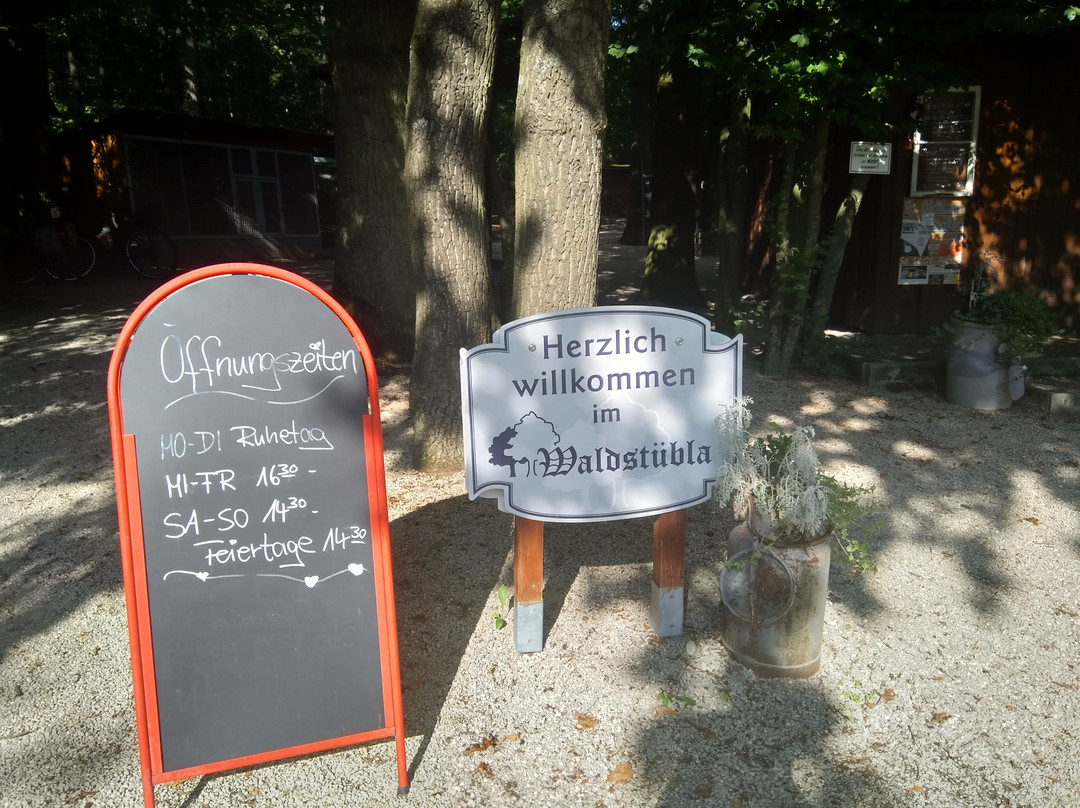 Öffnungszeiten
MO-DI Ruhetag
MI-FR 16³⁰ -
SA-SO 14³⁰ -
Feiertage 14³⁰
Herzlich
willkommen
im
Waldstübla